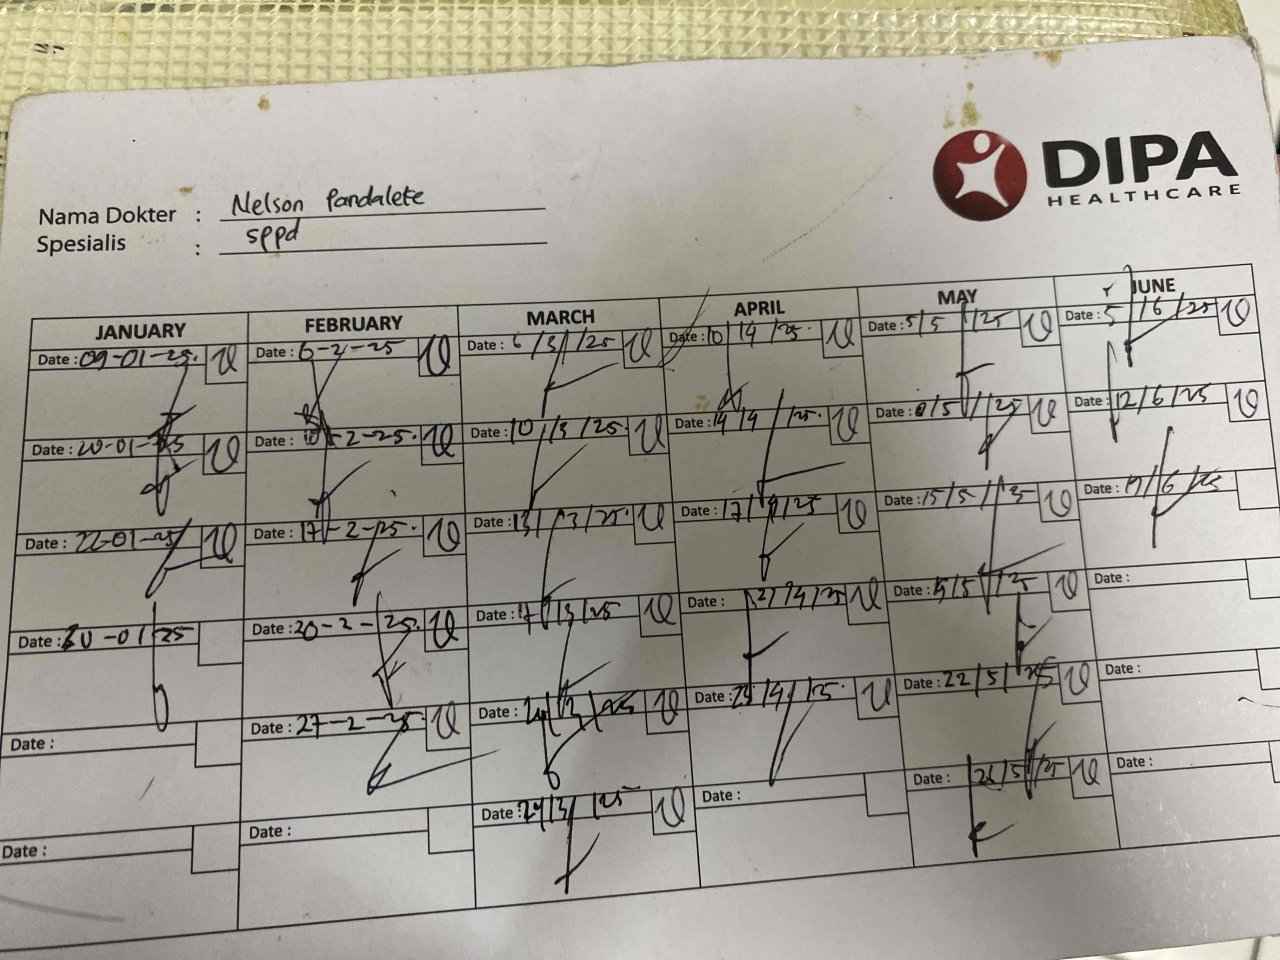 DIPA
HEALTHCARE
Nama Dokter : Nelson Pandalete
Spesialis : sppd
JANUARY FEBRUARY MARCH APRIL MAY JUNE
Date : 09-01-25. Date : 6-2-25 Date : 6/3/25 Date : 10/4/25. Date : 5/5/25 Date : 5/6/25
Date : 20-01-25 Date : 10-2-25. Date : 10/3/25. Date : 14/4/25. Date : /5/25 Date : 12/6/25
Date : 22-01-25 Date : 17-2-25. Date : 13/3/25. Date : 17/4/25 Date : 15/5/25 Date : /6/25
Date : 30-01-25 Date : 20-2-25. Date : 17/3/25 Date : 21/4/25 Date : /5/25 Date :
Date : Date : 27-2-25. Date : /3/25 Date : /4/25. Date : 22/5/25 Date :
Date : Date : Date : /3/25 Date : Date : 26/5/25 Date :